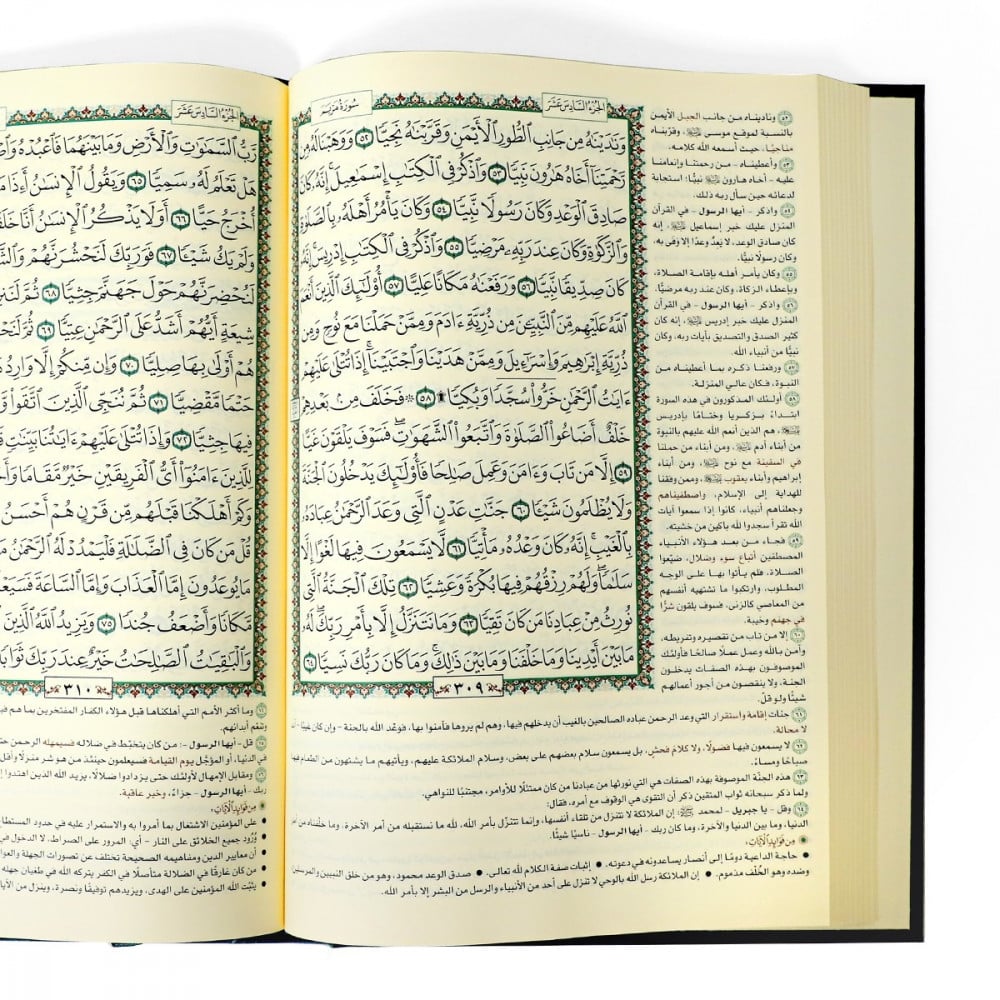 سورة مريم
الجزء السادس عشر
وَنَٰدَيْنَٰهُ مِن جَانِبِ ٱلطُّورِ ٱلْأَيْمَنِ وَقَرَّبْنَٰهُ نَجِيًّا ٥٢ وَوَهَبْنَا لَهُۥ مِن
رَّحْمَتِنَآ أَخَاهُ هَٰرُونَ نَبِيًّا ٥٣ وَٱذْكُرْ فِى ٱلْكِتَٰبِ إِسْمَٰعِيلَ إِنَّهُۥ كَانَ
صَادِقَ ٱلْوَعْدِ وَكَانَ رَسُولًا نَّبِيًّا ٥٤ وَكَانَ يَأْمُرُ أَهْلَهُۥ بِٱلصَّلَوٰةِ
وَٱلزَّكَوٰةِ وَكَانَ عِندَ رَبِّهِۦ مَرْضِيًّا ٥٥ وَٱذْكُرْ فِى ٱلْكِتَٰبِ إِدْرِيسَ إِنَّهُۥ
كَانَ صِدِّيقًا نَّبِيًّا ٥٦ وَرَفَعْنَٰهُ مَكَانًا عَلِيًّا ٥٧ أُو۟لَٰٓئِكَ ٱلَّذِينَ أَنْعَمَ
ٱللَّهُ عَلَيْهِم مِّنَ ٱلنَّبِيِّـۧنَ مِن ذُرِّيَّةِ ءَادَمَ وَمِمَّنْ حَمَلْنَا مَعَ نُوحٍ وَمِن
ذُرِّيَّةِ إِبْرَٰهِيمَ وَإِسْرَٰٓءِيلَ وَمِمَّنْ هَدَيْنَا وَٱجْتَبَيْنَآ إِذَا تُتْلَىٰ عَلَيْهِمْ
ءَايَٰتُ ٱلرَّحْمَٰنِ خَرُّوا۟ سُجَّدًا وَبُكِيًّا ۩ ٥٨ ۞ فَخَلَفَ مِنۢ بَعْدِهِمْ
خَلْفٌ أَضَاعُوا۟ ٱلصَّلَوٰةَ وَٱتَّبَعُوا۟ ٱلشَّهَوَٰتِ فَسَوْفَ يَلْقَوْنَ غَيًّا
٥٩ إِلَّا مَن تَابَ وَءَامَنَ وَعَمِلَ صَٰلِحًا فَأُو۟لَٰٓئِكَ يَدْخُلُونَ ٱلْجَنَّةَ
وَلَا يُظْلَمُونَ شَيْـًٔا ٦٠ جَنَّٰتِ عَدْنٍ ٱلَّتِى وَعَدَ ٱلرَّحْمَٰنُ عِبَادَهُۥ
بِٱلْغَيْبِ إِنَّهُۥ كَانَ وَعْدُهُۥ مَأْتِيًّا ٦١ لَّا يَسْمَعُونَ فِيهَا لَغْوًا إِلَّا
سَلَٰمًا وَلَهُمْ رِزْقُهُمْ فِيهَا بُكْرَةً وَعَشِيًّا ٦٢ تِلْكَ ٱلْجَنَّةُ ٱلَّتِى
نُورِثُ مِنْ عِبَادِنَا مَن كَانَ تَقِيًّا ٦٣ وَمَا نَتَنَزَّلُ إِلَّا بِأَمْرِ رَبِّكَ لَهُۥ
مَا بَيْنَ أَيْدِينَا وَمَا خَلْفَنَا وَمَا بَيْنَ ذَٰلِكَ وَمَا كَانَ رَبُّكَ نَسِيًّا ٦٤
٣٠٩
٥٢ وناديناه من جانب الجبل الأيمن
بالنسبة لموقع موسى ﷺ، وقرّبناه
مناجيًا، حيث أسمعه الله كلامه.
٥٣ وأعطيناه - من رحمتنا وإنعامنا
عليه - أخاه هارون ﷺ نبيًّا؛ استجابة
لدعائه حين سأل ربه ذلك.
٥٤ واذكر - أيها الرسول - في القرآن
المنزل عليك خبر إسماعيل ﷺ، إنه
كان صادق الوعد، لا يعِدُ وعدًا إلا وَفى به،
وكان رسولًا نبيًّا.
٥٥ وكان يأمر أهله بإقامة الصلاة،
وبإعطاء الزكاة، وكان عند ربه مرضيًّا.
٥٦ واذكر - أيها الرسول - في القرآن
المنزل عليك خبر إدريس ﷺ، إنه كان
كثير الصدق والتصديق بآيات ربه، وكان
نبيًّا من أنبياء الله.
٥٧ ورفعنا ذكره بما أعطيناه من
النبوة، فكان عالي المنزلة.
٥٨ أولئك المذكورون في هذه السورة
ابتداءً بزكريا وختامًا بإدريس
ﷺ، هم الذين أنعم الله عليهم بالنبوة
من أبناء آدم ﷺ، ومن أبناء من حملنا
في السفينة مع نوح ﷺ، ومن أبناء
إبراهيم وأبناء يعقوب ﷺ، وممن وفقنا
للهداية إلى الإسلام، واصطفيناهم
وجعلناهم أنبياء، كانوا إذا سمعوا آيات
الله تقرأ سجدوا لله باكين من خشيته.
٥٩ فجاء من بعد هؤلاء الأنبياء
المصطفين أتباع سوء وضلال، ضيّعوا
الصلاة، فلم يأتوا بها على الوجه
المطلوب، وارتكبوا ما تشتهيه أنفسهم
من المعاصي كالزنى، فسوف يلقون شرًّا
في جهنم وخيبة.
٦٠ إلا من تاب من تقصيره وتفريطه،
وآمن بالله وعمل عملًا صالحًا فأولئك
الموصوفون بهذه الصفات يدخلون
الجنة، ولا ينقصون من أجور أعمالهم
شيئًا ولو قلّ.
٦١ جنات إقامة واستقرار التي وعد الرحمن عباده الصالحين بالغيب أن يدخلهم فيها، وهم لم يروها فآمنوا بها، فوعْد الله بالجنة - وإن كان غيبًا - آتٍ
لا محالة.
٦٢ لا يسمعون فيها فضولًا، ولا كلام فحش، بل يسمعون سلام بعضهم على بعض، وسلام الملائكة عليهم، ويأتيهم ما يشتهون من الطعام فيها
صباحًا ومساءً.
٦٣ هذه الجنَّة الموصوفة بهذه الصفات هي التي نورثها من عبادنا من كان ممتثلًا للأوامر، مجتنبًا للنواهي.
ولما ذكر سبحانه ثواب المتقين ذكر أن التقوى هي الوقوف مع أمره، فقال:
٦٤ وقل - يا جبريل - لمحمد ﷺ: إن الملائكة لا تتنزل من تلقاء أنفسها، وإنما تتنزل بأمر الله، لله ما نستقبله من أمر الآخرة، وما خلَّفناه من أمر
الدنيا، وما بين الدنيا والآخرة، وما كان ربك - أيها الرسول - ناسيًا شيئًا.
مِن فَوَائِدِ الآيَاتِ:
• حاجة الداعية دومًا إلى أنصار يساعدونه في دعوته. • إثبات صفة الكلام لله تعالى. • صدق الوعد محمود، وهو من خلق النبيين والمرسلين،
وضده وهو الخُلْف مذموم. • إن الملائكة رسل الله بالوحي لا تنزل على أحد من الأنبياء والرسل من البشر إلا بأمر الله.
الجزء السادس عشر
رَّبُّ ٱلسَّمَٰوَٰتِ وَٱلْأَرْضِ وَمَا بَيْنَهُمَا فَٱعْبُدْهُ
هَلْ تَعْلَمُ لَهُۥ سَمِيًّا ٦٥ وَيَقُولُ ٱلْإِنسَٰنُ أَءِذَا
أُخْرَجُ حَيًّا ٦٦ أَوَلَا يَذْكُرُ ٱلْإِنسَٰنُ أَنَّا
وَلَمْ يَكُ شَيْـًٔا ٦٧ فَوَرَبِّكَ لَنَحْشُرَنَّهُمْ
لَنُحْضِرَنَّهُمْ حَوْلَ جَهَنَّمَ جِثِيًّا ٦٨ ثُمَّ
شِيعَةٍ أَيُّهُمْ أَشَدُّ عَلَى ٱلرَّحْمَٰنِ عِتِيًّا ٦٩ ثُمَّ
هُمْ أَوْلَىٰ بِهَا صِلِيًّا ٧٠ وَإِن مِّنكُمْ إِلَّا وَارِدُهَا
حَتْمًا مَّقْضِيًّا ٧١ ثُمَّ نُنَجِّى ٱلَّذِينَ ٱتَّقَوا۟
فِيهَا جِثِيًّا ٧٢ وَإِذَا تُتْلَىٰ عَلَيْهِمْ ءَايَٰتُنَا بَيِّنَٰتٍ
لِلَّذِينَ ءَامَنُوٓا۟ أَىُّ ٱلْفَرِيقَيْنِ خَيْرٌ مَّقَامًا
وَكَمْ أَهْلَكْنَا قَبْلَهُم مِّن قَرْنٍ هُمْ أَحْسَنُ
قُلْ مَن كَانَ فِى ٱلضَّلَٰلَةِ فَلْيَمْدُدْ لَهُ ٱلرَّحْمَٰنُ
مَا يُوعَدُونَ إِمَّا ٱلْعَذَابَ وَإِمَّا ٱلسَّاعَةَ
مَّكَانًا وَأَضْعَفُ جُندًا ٧٥ وَيَزِيدُ ٱللَّهُ ٱلَّذِينَ
وَٱلْبَٰقِيَٰتُ ٱلصَّٰلِحَٰتُ خَيْرٌ عِندَ رَبِّكَ ثَوَابًا
٣١٠
وما أكثر الأمم التي أهلكناها قبل هؤلاء الكفار المفتخرين بما هم فيه
وتنعّم أبدانهم.
قل - أيها الرسول -: من كان يتخبّط في ضلاله فسيمهله الرحمن
في الدنيا، أو المؤجّل يوم القيامة فسيعلمون حينئذ من هو شر منزلًا وأقل
ومقابل الإمهال لأولئك حتى يزدادوا ضلالًا، يزيد الله الذين اهتدوا
ربك - أيها الرسول - جزاءً، وخير عاقبة.
مِن فَوَائِدِ الآيَاتِ:
• على المؤمنين الاشتغال بما أمروا به والاستمرار عليه في حدود المستطاع
• وُرُود جميع الخلائق على النار - أي: المرور على الصراط، لا الدخول
• أن معايير الدين ومفاهيمه الصحيحة تختلف عن تصورات الجهلة والعوام
• من كان غارقًا في الضلالة متأصلًا في الكفر يتركه الله في طغيان جهله
• يثبّت الله المؤمنين على الهدى، ويزيدهم توفيقًا ونصرة، وينزل من